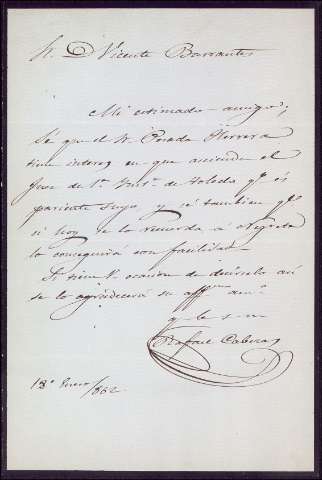 Sr. D. Vicente Barrantes
Mi estimado amigo;
Sé que el Sr. Posada Herrera
tiene interes en que ascienda el
Juez de 1ª. Inst.ª de Toledo qe. es
pariente suyo, y sé tambien qe.
si hoy se lo recuerda á Negrete
lo conseguirá con facilidad.
Si tiene V. ocasion de decirselo asi
se lo agradecerá su affmo. am.º
q. b. s. m.
Rafael Cabezas
18 Enero/862